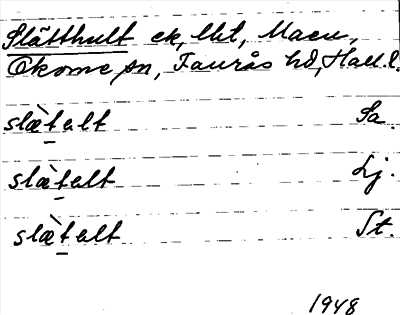 Slätthult ek, lht,
Okome sn, Faurås hd, Hall.l.
slæ̀t̲alt Sa.
slæ̀t̲alt Lj.
slæ̀t̲alt St.
1948